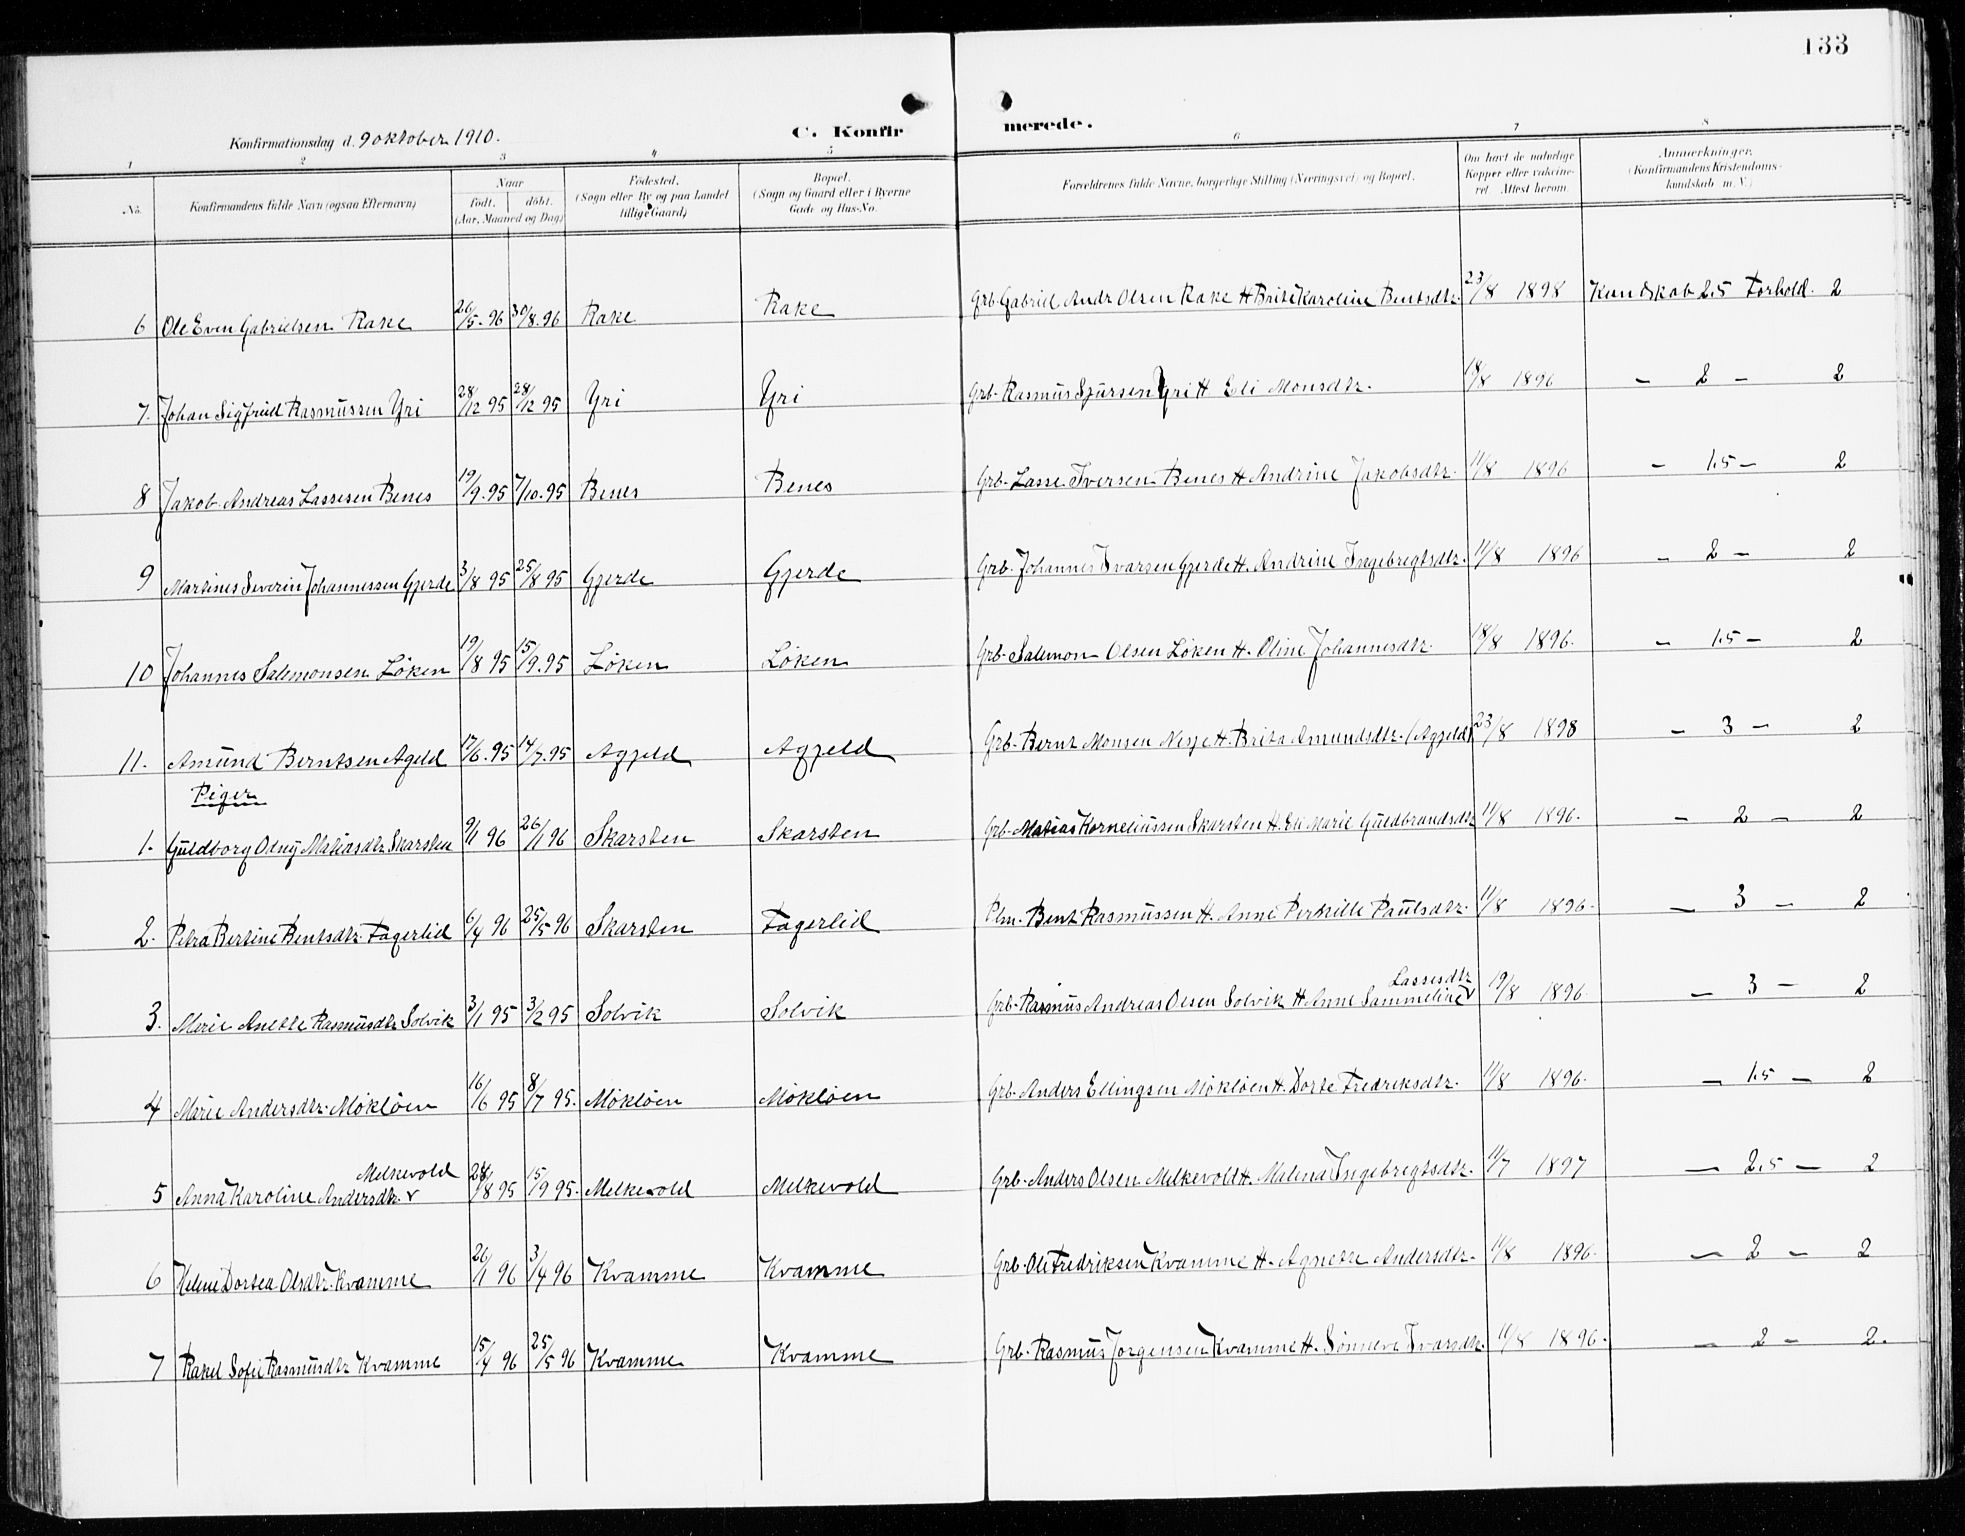 133
Konfirmationsdag d. 9 oktober 1910.
C. Konfirmerede.
1 2 3 4 5 6 7 8
No. Konfirmandens fulde Navn (ogsaa Efternavn) Naar født. døbt. (Aar, Maaned og Dag) Fødested. (Sogn eller By og paa Landet tillige Gaard) Bopæl. (Sogn og Gaard eller i Byerne Gade og Hus-No. Forældrenes fulde Navne, borgerlige Stilling (Næringsvei) og Bopæl. Om havt de naturlige Kopper eller vakcineret. Attest herom. Anmærkninger. (Konfirmandens Kristendomskundskab m. V.)
6 Ole Even Gabrielsen Rake 26/5. 96 30/8. 96 Rake Rake Grb. Gabriel Andr Olsen Rake H Brite Karoline Bentsdtr. 23/8 1898 Kundskab 2.5 Forhold. 2
7. Johan Sigfrid Rasmussen Yri 28/12 95 28/12 95 Yri Yri Grb. Rasmus Sjursen Yri H Eli Monsdtr. 18/8 1896 – 2 – 2
8 Jakob Andreas Lassesen Benes 19/9. 95 7/10. 95 Benes Benes Grb. Lasse Iversen Benes H Andrine Jakobsdtr. 11/8 1896 – 1.5 – 2
9 Martines Severin Johannessen Gjerde 3/8 95 25/8 95 Gjerde Gjerde Grb. Johannes Ivarsen Gjerde H. Andrine Ingebregtsdtr. 11/8 1896 – 2 – 2
10 Johannes Salemonsen Løken 19/8 95 15/9. 95 Løken Løken Grb. Salemon Olsen Løken H. Oline Johannesdtr. 18/8 1896. – 1.5 – 2
11. Amund Berntsen Ageld 17/6. 95 14/7. 95 Agjeld Agjeld Grb. Bernt Monsen Nesje H. Brita Amundsdtr. (Agjeld) 23/8 1898 – 3 – 2
Piger
1. Guldborg Oeny Matiasdtr Skarsten 9/1 96 26/1 96 Skarsten Skarsten Grb. Matias Korneliussen Skarsten H. Eli Marie Guldbrandsdtr 11/8 1896. – 2 – 2
2. Petra Bertine Bentsdtr Fagerlid 6/4 96 25/5 96 Skarsten Fagerlid Plm. Bent Rasmussen H. Anne Pernille Paulsdtr. 11/8 1896. – 3 – 2
3. Marie Anette Rasmusdtr Solvik 3/1 95 3/2 95 Solvik Solvik Grb. Rasmus Andreas Olsen Solvik H Anne Sammeline Lassesdtr 19/8 1896. – 3 – 2
4 Marie Andersdtr. Møkløen 16/6 95 8/7 95. Mökløen Mökløen Grb. Anders Ellingsen Mökløen H. Dorte Fredriksdtr. 11/8 1896. – 1.5 – 2
5 Anna Karoline Andersdtr. Melkevold 28/8 95 15/9 95. Melkevold Melkevold Grb. Anders Olsen Melkevold H. Malena Ingebregtsdtr. 11/7 1897 – 2.5 – 2
6 Helene Dortea Olsdtr. Kvamme 26/1 96 3/4 96 Kvamme Kvamme Grb. Ole Fredriksen Kvamme H. Agnette Andersdtr. 11/8 1896. – 2 – 2
7 Rakel Sofie Rasmusdtr Kvamme 15/4 96 25/5 96 Kvamme Kvamme Grb. Rasmus Jorgensen Kvamme H. Sønneve Ivarsdtr. 11/8 1896. – 2 – 2.